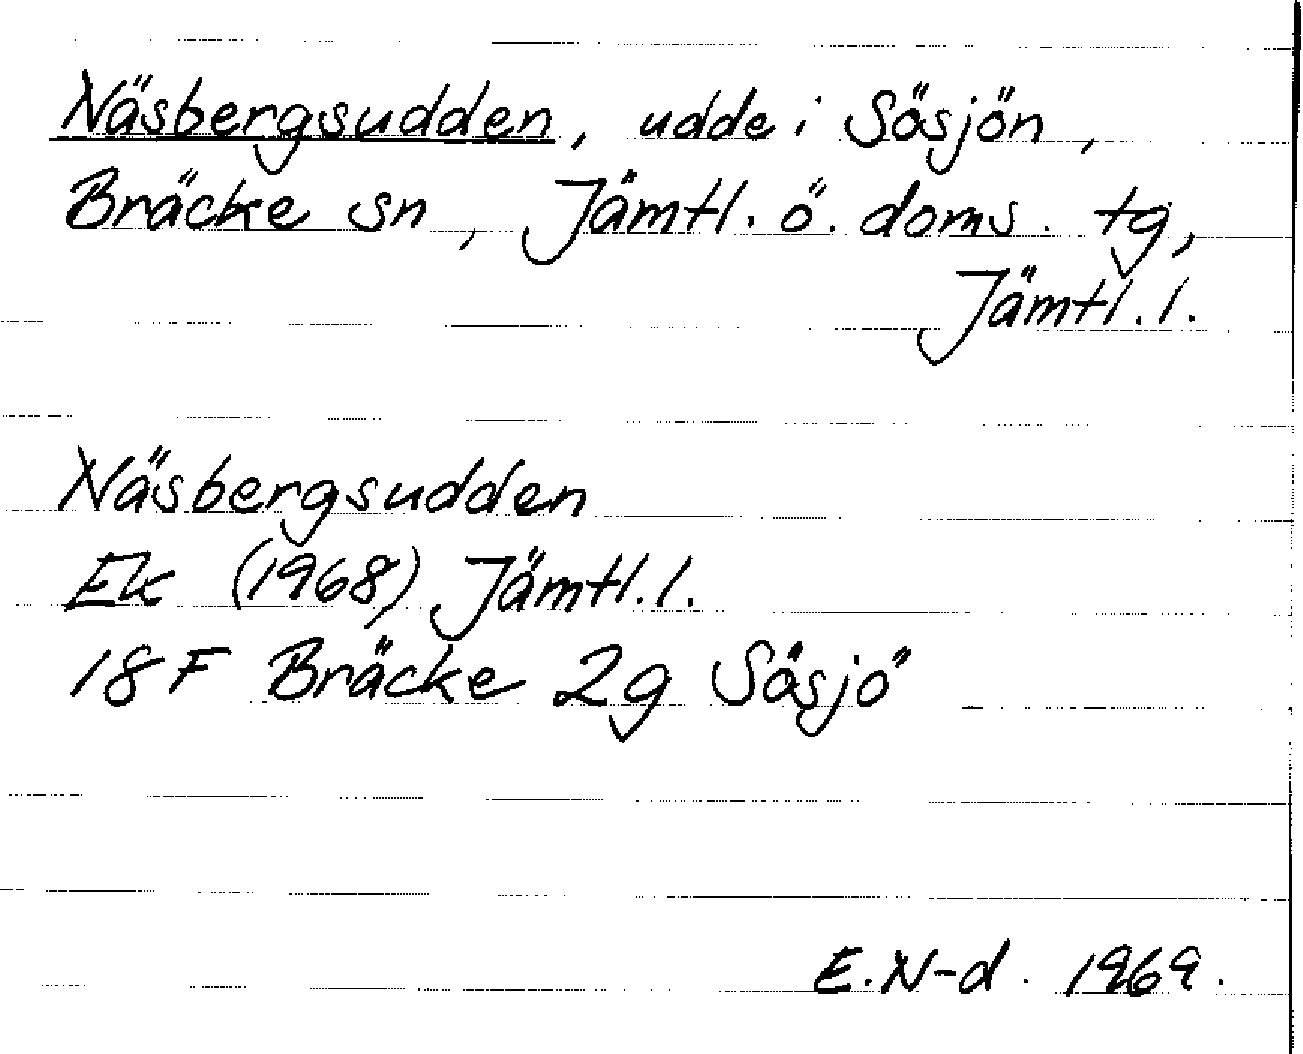 Näsbergsudden, udde i Sösjön,
Bräcke sn, Jämtl. ö. doms. tg,
Jämtl. l.
Näsbergsudden
Ek (1968) Jämtl. l.
18 F Bräcke 2g Sösjö
E. N-d. 1969.